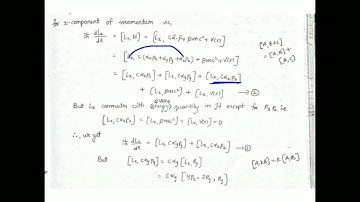 for x-component of momentum viz,
iħ dLx/dt = [Lx, H] = [Lx, cα⃗.p⃗ + βmc² + V(r)]
= [Lx, c(αxpx+αypy+αzpz) + βmc² + V(r)]
[A, B+C]
= [A, B] +
[A, C]
= [Lx, cαxpx] + [Lx, cαypy] + [Lx, cαzpz]
+ [Lx, βmc²] + [Lx, V(r)] → ②
But Lx commutes with every quantity in H except for Py Pz i.e
[Lx, cαxpx] = [Lx, βmc²] = [Lx, V(r)] = 0
∴, we get
iħ dLx/dt = [Lx, cαypy] + [Lx, cαzpz] → ③
But [Lx, cαypy] = cαy [Lx, py]
[A, kB] = k [A, B]
= cαy [yPz - zPy, Py]